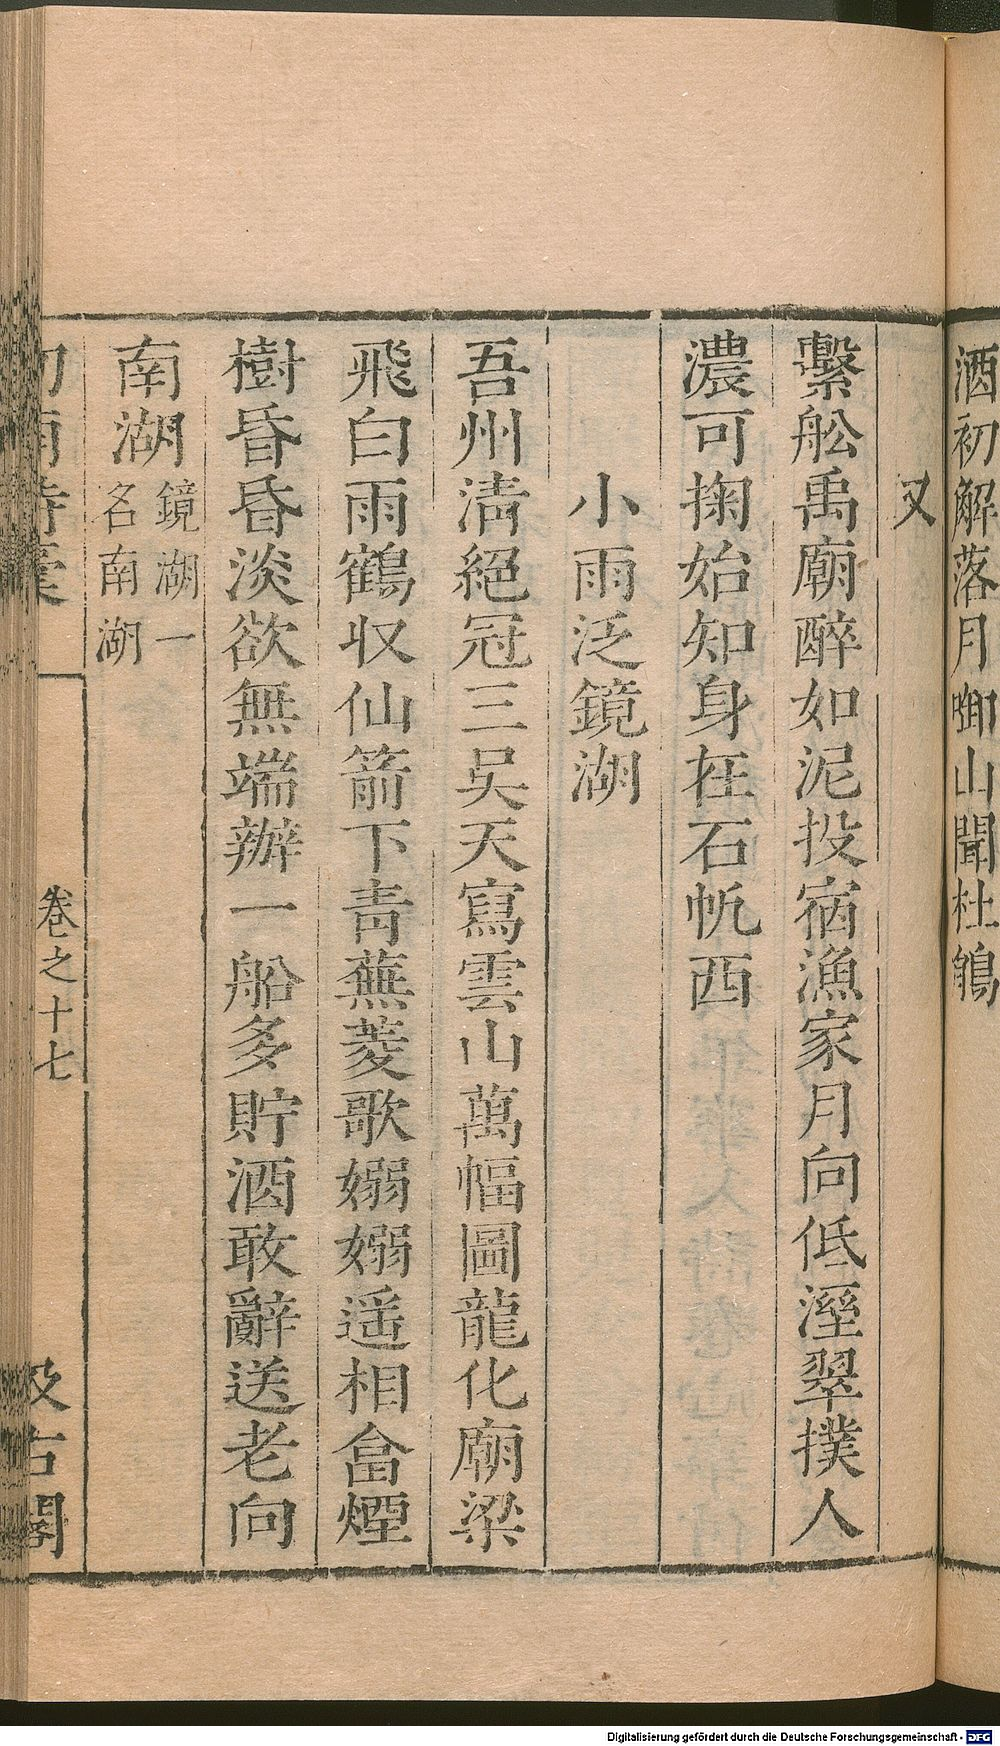 酒初解落月啣山聞杜鵑
又
繫舩禹廟醉如泥投宿漁家月向低溼翠撲人
濃可掬始知身在石帆西
小雨泛鏡湖
吾州清絕冠三吳天寫雲山萬幅圖龍化廟梁
飛白雨鶴收仙箭下青蕪菱歌嫋嫋遥相畣煙
樹昏昏淡欲無端辦一船多貯酒敢辭送老向
南湖
鏡湖一
名南湖
卷之十七
汲古閣
Digitalisierung gefördert durch die Deutsche Forschungsgemeinschaft - DFG